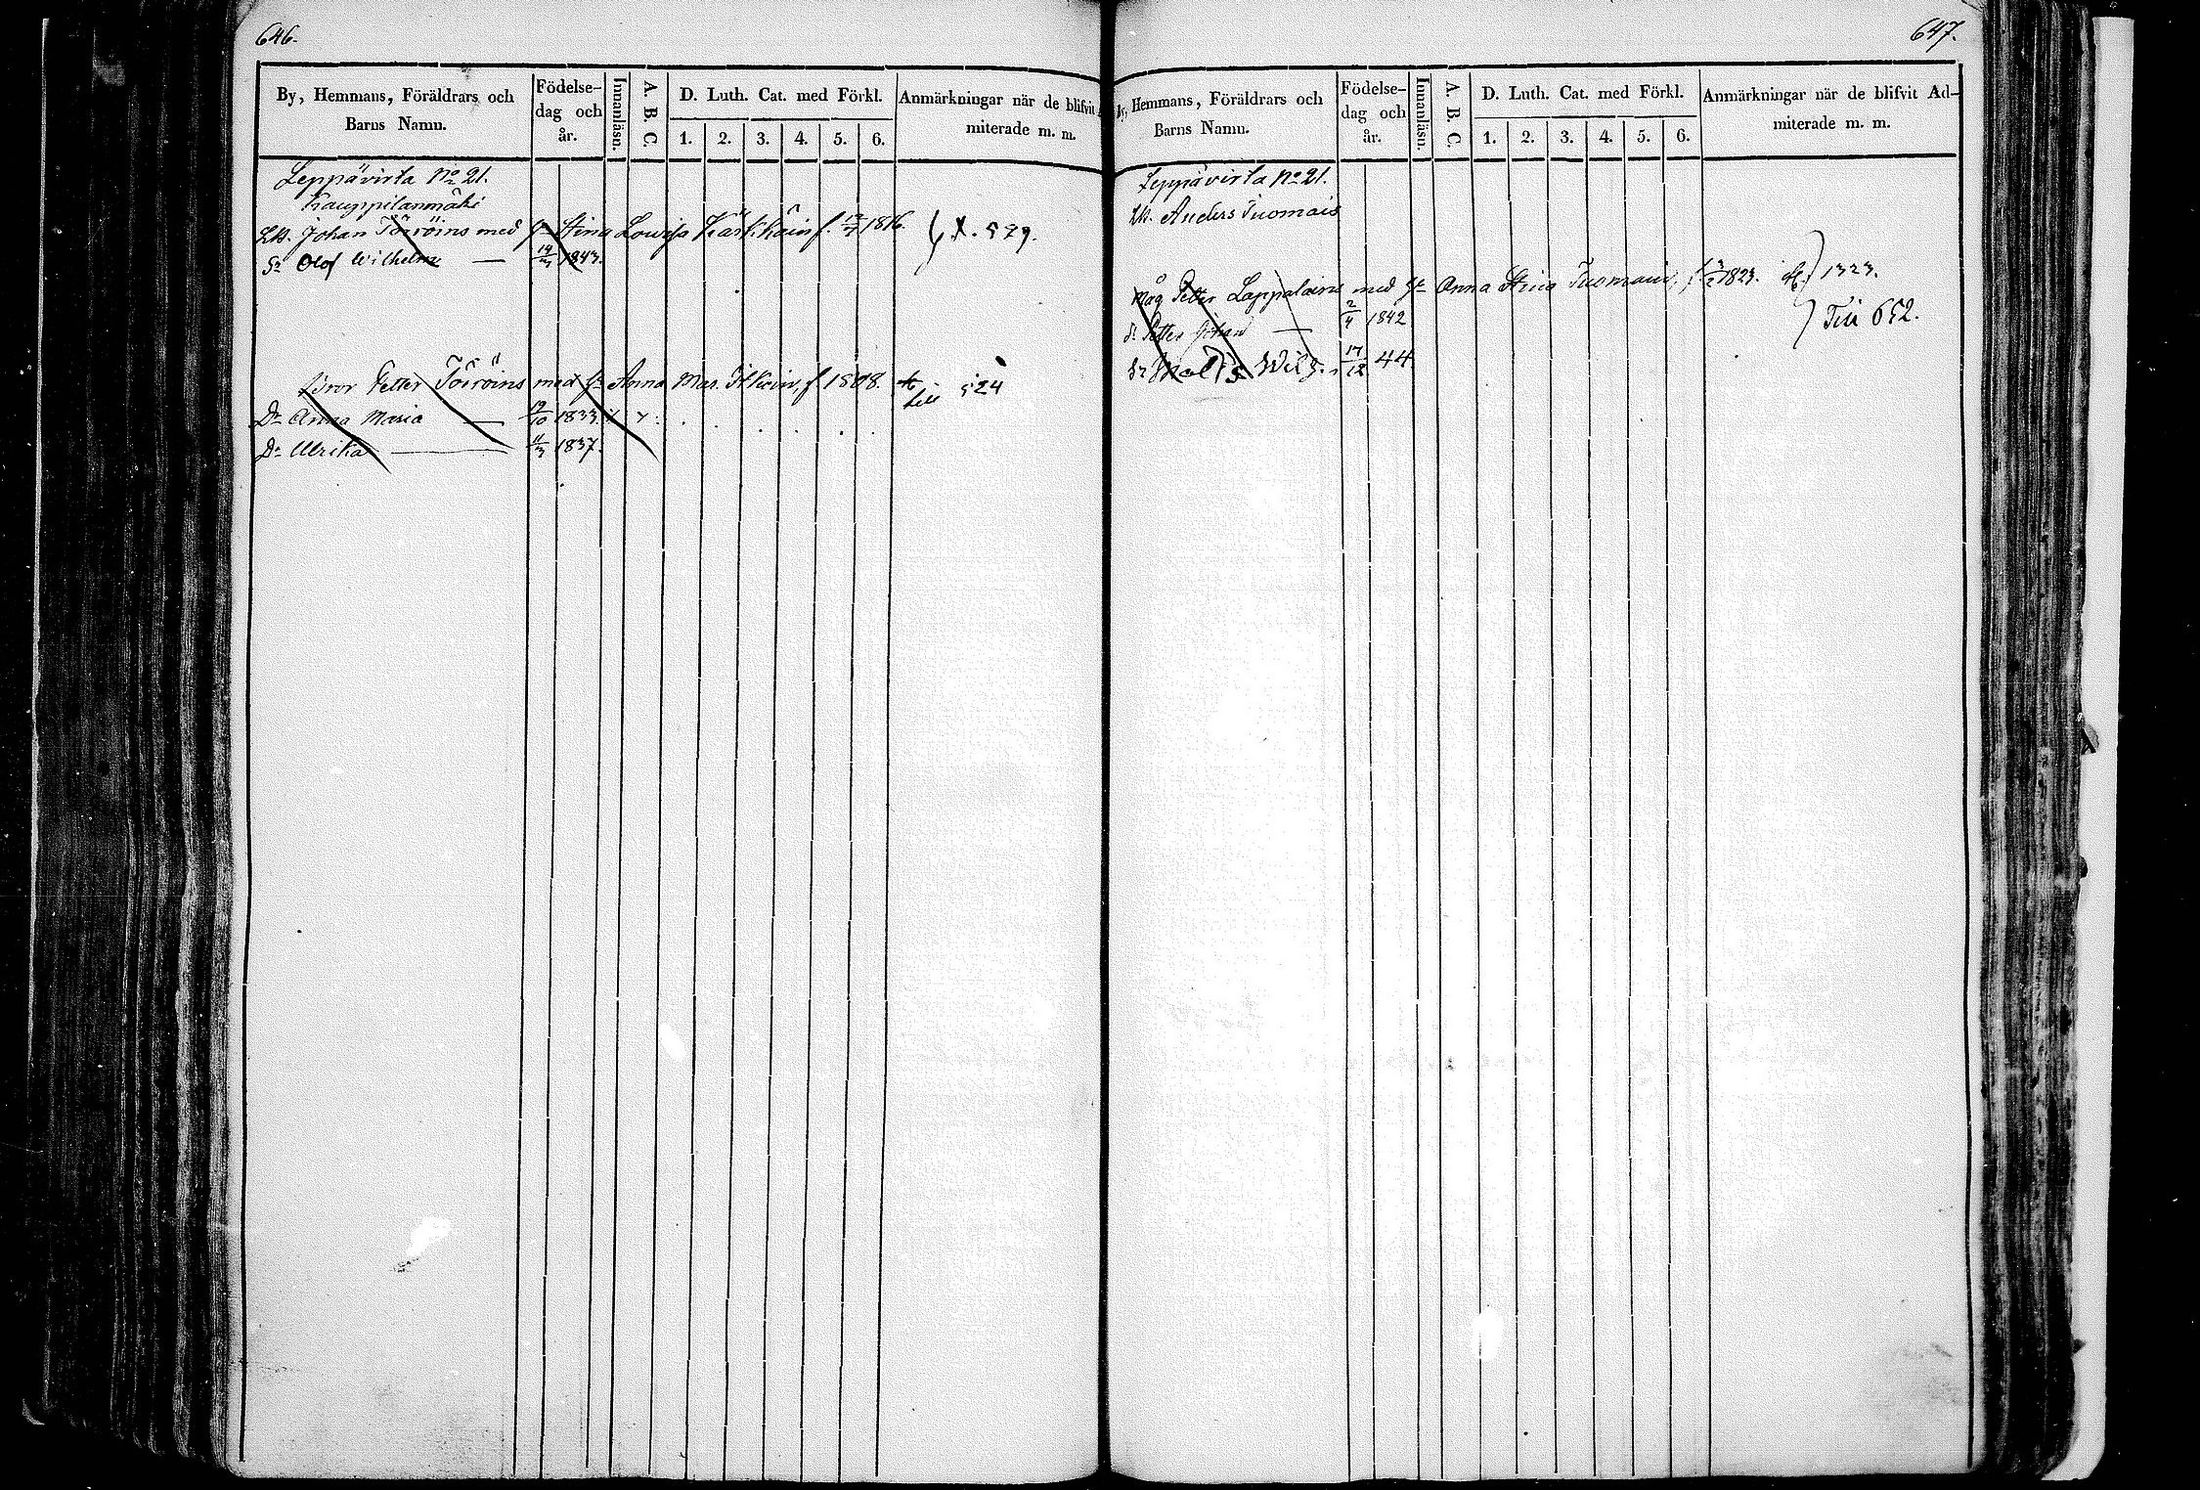 646.
By, Hemmans, Föräldrars och Barns Namn.
Födelse-dag och år.
Innanläsn.
A. B. C.
D. Luth. Cat. med Förkl.
1. 2. 3. 4. 5. 6.
Anmärkningar när de blifvit
miterade m. m.
Leppävirta No 21.
Kauppilanmäki
Johan Töiröins med Hu Stina Lovisa Kärkkäin f. 1816. 579.
Sn Olof Wilhelm — 1843.
Bror Petter Töiröins med Hu Anna Mar. f. 1808. till 524
Dr Anna Maria — 19/10 1833.
Dr Ulrika — 1837.
647.
By, Hemmans, Föräldrars och Barns Namn.
Födelse-dag och år.
Innanläsn.
A. B. C.
D. Luth. Cat. med Förkl.
1. 2. 3. 4. 5. 6.
Anmärkningar när de blifvit Ad-
miterade m. m.
Leppävirta No 21.
Anders Tuomais
Måg Petter Lappalains med Hu Anna Stina Tuomain, f. 3/2 1823. 1323.
Till 652.
Sn Petter Johan — 2/4 1842
17/12 44